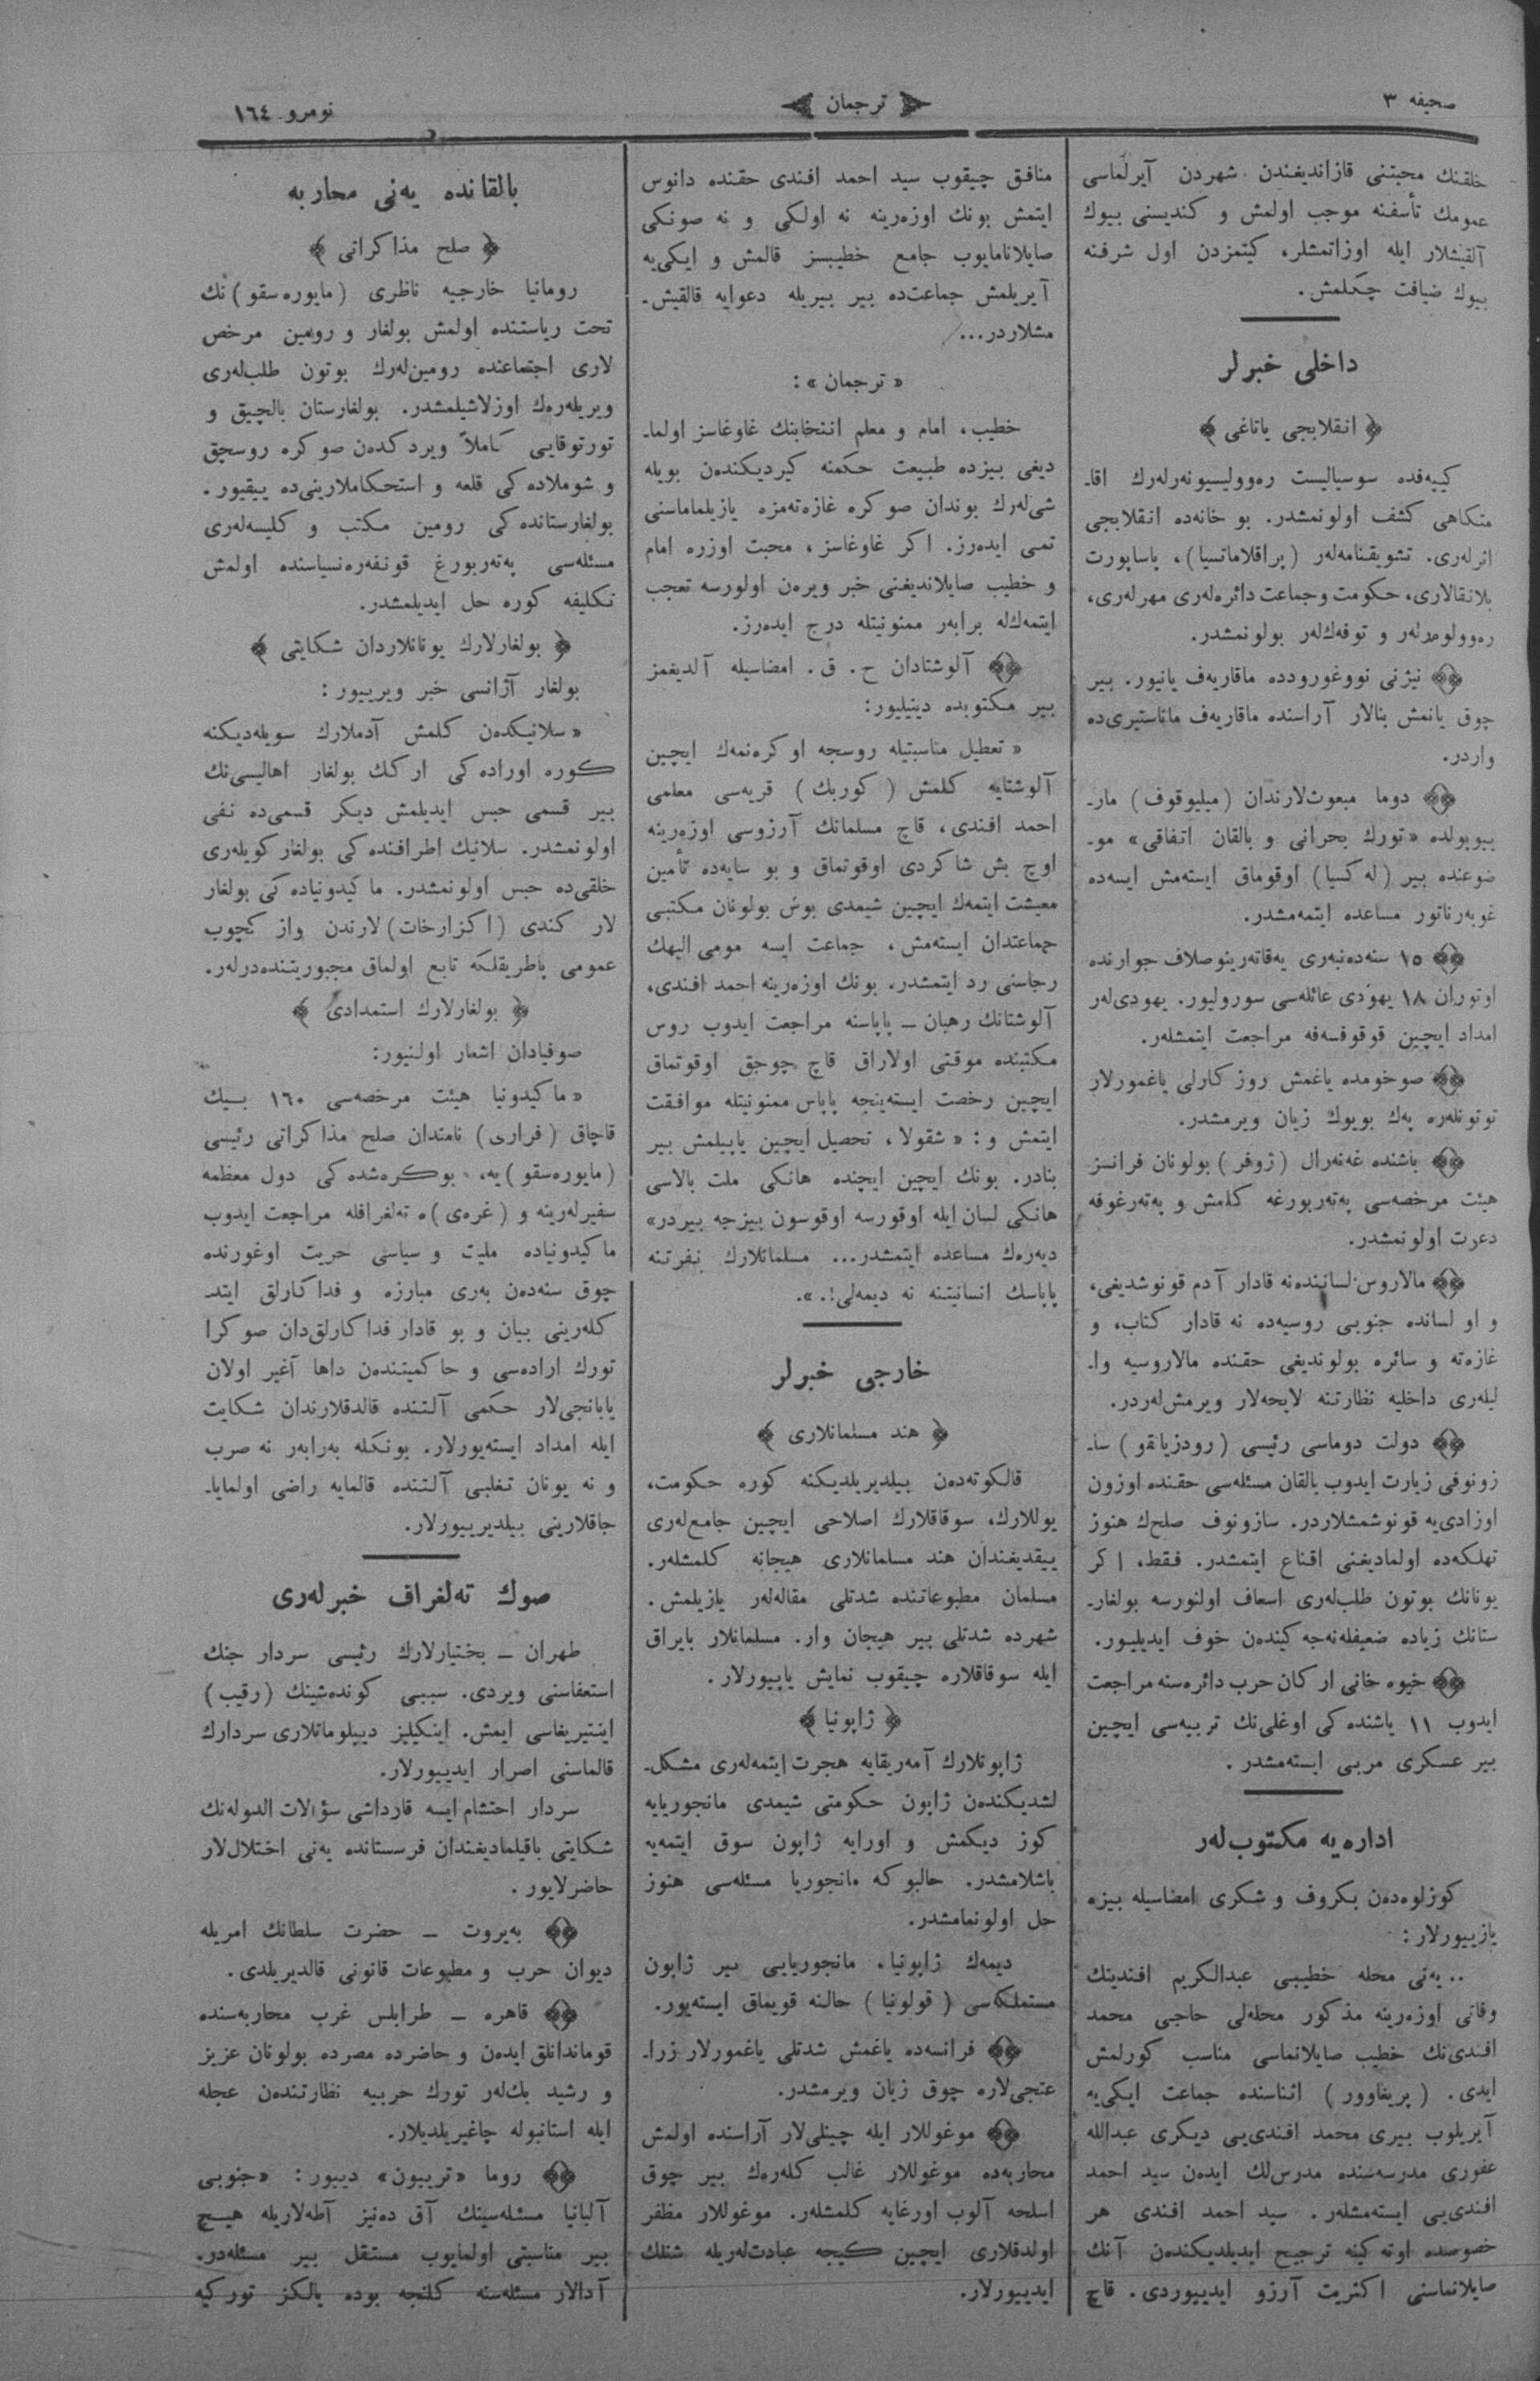 صحيفه ٣
ترجمان
نومرو ١٦٤
خلقنك محبتنى قازانديغندن شهردن آيرلماسى
عمومك تأسفنه موجب اولمش و كنديسنى بيوك
آلقيشلار ايله اوزاتمشلر، كيتمزدن اول شرفنه
بيوك ضيافت چكلمش.
داخلى خبرلر
﴿ انقلابجى ياتاغى ﴾
كييه‌فده سوسياليست ره‌ووليسيونه‌رلرك اقا-
متكاهى كشف اولونمشدر. بو خانه‌ده انقلابجى
اثرله‌رى. تشويقنامه‌لر (پراقلاماتسيا)، پاساپورت
بلانقالارى، حكومت وجماعت دائره‌له‌رى مهرله‌رى،
ره‌وولوه‌رله‌ر و توفه‌ك‌لر بولونمشدر.
نيژنى نووغوروдده ماقاريه‌ف يانيور. بير
چوق يانمش بنالار آراسنده ماقاريه‌ف ماناستيرى‌ده
واردر.
دوما مبعوث‌لارندان (ميليوقوف) مار-
يوپولده «تورك بحرانى و بالقان اتفاقى» مو-
ضوعنده بير (له‌كسيا) اوقوماق ايسته‌مش ايسه‌ده
غوبه‌رناتور مساعده ايتمه‌مشدر.
١٥ سنه‌ده‌نبه‌رى يه‌قاته‌رينوصلاف جوارنده
اوتوران ١٨ يهودى عائله‌سى سورولیور. يهودى‌لر
امداد ايچين قوقوفسه‌فه مراجعت ايتمشلر.
صوخومده ياغمش روزكارلى ياغمورلار
توتونله‌ره په‌ك بويوك زيان ويرمشدر.
باشنده غه‌نه‌رال (ژوفر) بولونان فرانسز
هيئت مرخصه‌سى په‌ته‌ربورغه كلمش و په‌ته‌رغوفه
دعوت اولونمشدر.
مالاروس لسانيندەنه قادار آدم قونوشديغى،
و او لسانده جنوبى روسيه‌ده نه قادار كتاب، و
غازه‌ته و سائره بولونديغى حقنده مالاروسيه وا-
ليله‌رى داخليه نظارتنه لايحه‌لار ويرمش‌لردر.
دولت دوماسى رئيسى (رودزيانقو) سا-
زونوفى زيارت ايدوب بالقان مسئله‌سى حقنده اوزون
اوزادى‌يه قونوشمشلاردر. سازونوف صلح‌ك هنوز
تهلكه‌ده اولماديغنى اقناع ايتمشدر. فقط، اكر
يونانك بوتون طلب‌له‌رى اسعاف اولنورسه بولغار-
ستانك زياده ضعيفله‌نه‌جه‌كيندن خوف ايديليور.
خيوه خانى اركان حرب دائره‌سنه مراجعت
ايدوب ١١ ياشنده‌كى اوغلى‌نك تربيه‌سى ايچين
بير عسكرى مربى ايسته‌مشدر.
اداره‌يه مكتوب‌لر
كوزلوه‌ده‌ن بكروف و شكرى امضاسيله بيزه
يازييورلار:
.. يه‌نى محله خطيبى عبدالكريم افندينك
وفاتى اوزه‌رينه مذكور محله‌لى حاجى محمد
افندى‌نك خطيب صايلانماسى مناسب كورلمش
ايدى. (پريغاوور) اثناسنده جماعت ايكى‌يه
آيريلوب بيرى محمد افندى‌يى ديكرى عبدالله
غفورى مدرسه‌سنده مدرس‌لك ايده‌ن سيد احمد
افندى‌يى ايسته‌مشلر. سيد احمد افندى هر
خصوصده اوته‌كينه ترجيح ايديلديكنده‌ن آنك
صايلانماسنى اكثريت آرزو ايدييوردى. قاچ
منافق چيقوب سيد احمد افندى حقنده دانوس
ايتمش بونك اوزه‌رينه نه اولكى و نه صونكى
صايلانامايوب جامع خطيبسز قالمش و ايكى‌يه
آيريلمش جماعت‌ده بير بيريله دعوايه قالقيش-
مشلاردر...
« ترجمان »:
خطيب، امام و معلم انتخابنك غاوغاسز اولما-
ديغى بيزده طبيعت حكمنه كيرديكندن بويله
شى‌له‌رك بوندان صوكره غازه‌ته‌مزه يازيلماماسنى
تمى ايده‌رز. اكر غاوغاسز، محبت اوزره امام
و خطيب صايلانديغنى خبر ويره‌ن اولورسه تعجب
ايتمه‌ك‌له برابه‌ر ممنونيتله درج ايده‌رز.
آلوشتادان ح. ق. امضاسيله آلديغمز
بير مكتوبده دينيليور:
« تعطيل مناسبتيله روسجه اوكره‌نمه‌ك ايچين
آلوشتايه كلمش (كوربك) قريه‌سى معلمى
احمد افندى، قاچ مسلمانك آرزوسى اوزه‌رينه
اوچ بش شاكردى اوقوتماق و بو سايه‌ده تأمين
معيشت ايتمه‌ك ايچين شيمدى بوش بولونان مكتبى
جماعتدان ايسته‌مش، جماعت ايسه مومى اليهك
رجاسنى رد ايتمشدر. بونك اوزه‌رينه احمد افندى،
آلوشتانك رهبان — پاپاسنه مراجعت ايدوب روس
مكتبنده موقتى اولاراق قاچ چوجق اوقوتماق
ايچين رخصت ايسته‌ينجه پاپاس ممنونيتله موافقت
ايتمش و: « شقولا، تحصيل ايچين ياپيلمش بير
بنادر. بونك ايچين ايچنده هانكى ملت بالاسى
هانكى لسان ايله اوقورسه اوقوسون بيزجه بيردر»
ديه‌ره‌ك مساعده ايتمشدر... مسلمانلارك نفرتنه
پاپاسك انسانيتنه نه ديمه‌لى!. ».
خارجى خبرلر
﴿ هند مسلمانلارى ﴾
قالكوته‌ده‌ن بيلديريلديكنه كوره حكومت،
يوللارك، سوقاقلارك اصلاحى ايچين جامع‌له‌رى
ييقديغندان هند مسلمانلارى هيجانه كلمشلر.
مسلمان مطبوعاتنده شدتلى مقاله‌لر يازيلمش.
شهرده شدتلى بير هيجان وار. مسلمانلار بايراق
ايله سوقاقلاره چيقوب نمايش ياپييورلار.
﴿ ژاپونيا ﴾
ژاپونلارك آمه‌ريقايه هجرت ايتمه‌له‌رى مشكل-
لشديكندن ژاپون حكومتى شيمدى مانجوريايه
كوز ديكمش و اورايه ژاپون سوق ايتمه‌يه
باشلامشدر. حالبوكه مانجوريا مسئله‌سى هنوز
حل اولونمامشدر.
ديمه‌ك ژاپونيا، مانجوريايى بير ژاپون
مستملكه‌سى (قولونيا) حالنه قويماق ايسته‌يور.
فرانسه‌ده ياغمش شدتلى ياغمورلار زرا-
عتجى‌لاره چوق زيان ويرمشدر.
موغوللار ايله چينلى‌لار آراسنده اولمش
محاربه‌ده موغوللار غالب كله‌ره‌ك بير چوق
اسلحه آلوب اورغايه كلمشلر. موغوللار مظفر
اولدقلارى ايچين كيجه عبادت‌له‌ريله شنلك
ايدييورلار.
بالقانده يه‌نى محاربه
﴿ صلح مذاكراتى ﴾
رومانيا خارجيه ناظرى (مايوره‌سقو)نك
تحت رياستنده اولمش بولغار و رومين مرخص
لارى اجتماعنده رومين‌له‌رك بوتون طلب‌له‌رى
ويريله‌ره‌ك اوزلاشيلمشدر. بولغارستان بالچيق و
تورتوقايى كاملاً ويردكده‌ن صوكره روسچق
و شوملاده‌كى قلعه و استحكاملارينى‌ده ييقيور.
بولغارستانده‌كى رومين مكتب و كليسه‌له‌رى
مسئله‌سى په‌ته‌ربورغ قونفه‌ره‌نسياسنده اولمش
تكليفه كوره حل ايديلمشدر.
﴿ بولغارلارك يونانلاردان شكايتى ﴾
بولغار آژانسى خبر ويرييور:
« سلانيكده‌ن كلمش آدملارك سويله‌ديكنه
كوره اوراده‌كى ارکك بولغار اهاليسى‌نك
بير قسمى حبس ايديلمش ديكر قسمى‌ده نفى
اولونمشدر. سلانيك اطرافنده‌كى بولغار كويله‌رى
خلقى‌ده حبس اولونمشدر. ماكيدونياده‌كى بولغار
لار كندى (اكزارخات)لارندن واز كچوب
عمومى پاطريقلكه تابع اولماق مجبوريتنده‌درلر.
﴿ بولغارلارك استمدادى ﴾
صوفيادان اشعار اولنيور:
« ماكيدونيا هيئت مرخصه‌سى ١٦٠ بيك
قاچاق (فرارى) نامندان صلح مذاكراتى رئيسى
(مايوره‌سقو)يه، بوكره‌شده‌كى دول معظمه
سفيرله‌رينه و (غره‌ى)ه ته‌لغرافله مراجعت ايدوب
ماكيدونياده مليت و سياسى حريت اوغورنده
چوق سنه‌ده‌ن به‌رى مبارزه و فداكارلق ايتد-
كله‌رينى بيان و بو قادار فداكارلق‌دان صوكرا
تورك اراده‌سى و حاكميتنده‌ن داها آغير اولان
يابانجى‌لار حكمى آلتنده قالدقلارندان شكايت
ايله امداد ايسته‌يورلار. بونكله به‌رابه‌ر نه صرب
و نه يونان تغلبى آلتنده قالمايه راضى اولمايا-
جاقلارينى بيلديرييورلار.
صوك ته‌لغراف خبرله‌رى
طهران — بختيارلارك رئيسى سردار جنك
استعفاسنى ويردى. سببى كونده‌شينك (رقيب)
اينتيريغاسى ايمش. اينكيليز ديپلوماتلارى سردارك
قالماسنى اصرار ايدييورلار.
سردار احتشام ايسه قارداشى سؤالات الدوله‌نك
شكايتى باقيلماديغندان فرسستانده يه‌نى اختلال‌لار
حاضرلايور.
به‌يروت — حضرت سلطانك امريله
ديوان حرب و مطبوعات قانونى قالديريلدى.
قاهره — طرابلس غرب محاربه‌سنده
قوماندانلق ايده‌ن و حاضرده مصرده بولونان عزيز
و رشيد بك‌لر تورك حربيه نظارتنده‌ن عجله
ايله استانبوله چاغيريلديلار.
روما «تريبون» دييور: «جنوبى
آلبانيا مسئله‌سينك آق ده‌نيز آطه‌لاريله هيچ
بير مناسبتى اولمايوب مستقل بير مسئله‌در.
آدالار مسئله‌سنه كلنجه بوده يالكز توركيه